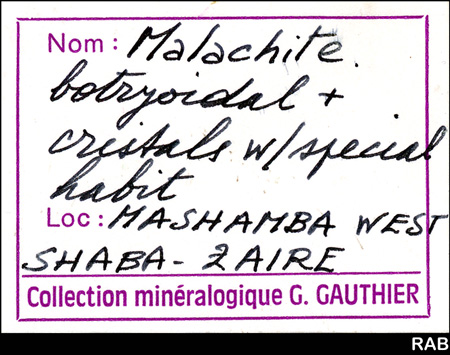 Nom: Malachite.
botryoidal +
cristals w/special
habit
Loc: MASHAMBA WEST
SHABA - ZAIRE
Collection minéralogique G. GAUTHIER
RAB